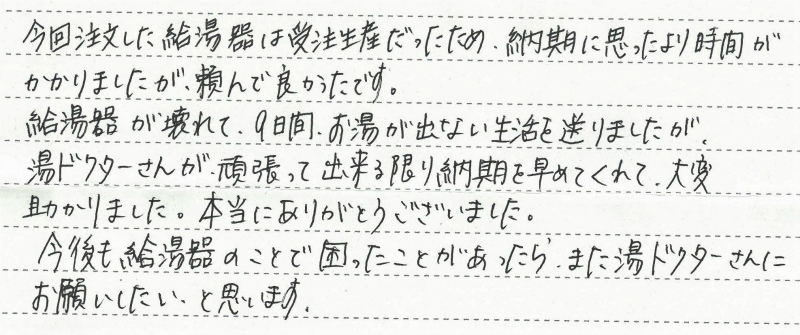 今回注文した給湯器は受注生産だったため、納期に思ったより時間が
かかりましたが、頼んで良かったです。
給湯器が壊れて、9日間、お湯が出ない生活を送りましたが、
湯ドクターさんが、頑張って出来る限り納期を早めてくれて、大変
助かりました。本当にありがとうございました。
今後も給湯器のことで困ったことがあったら、また湯ドクターさんに
お願いしたい、と思います。